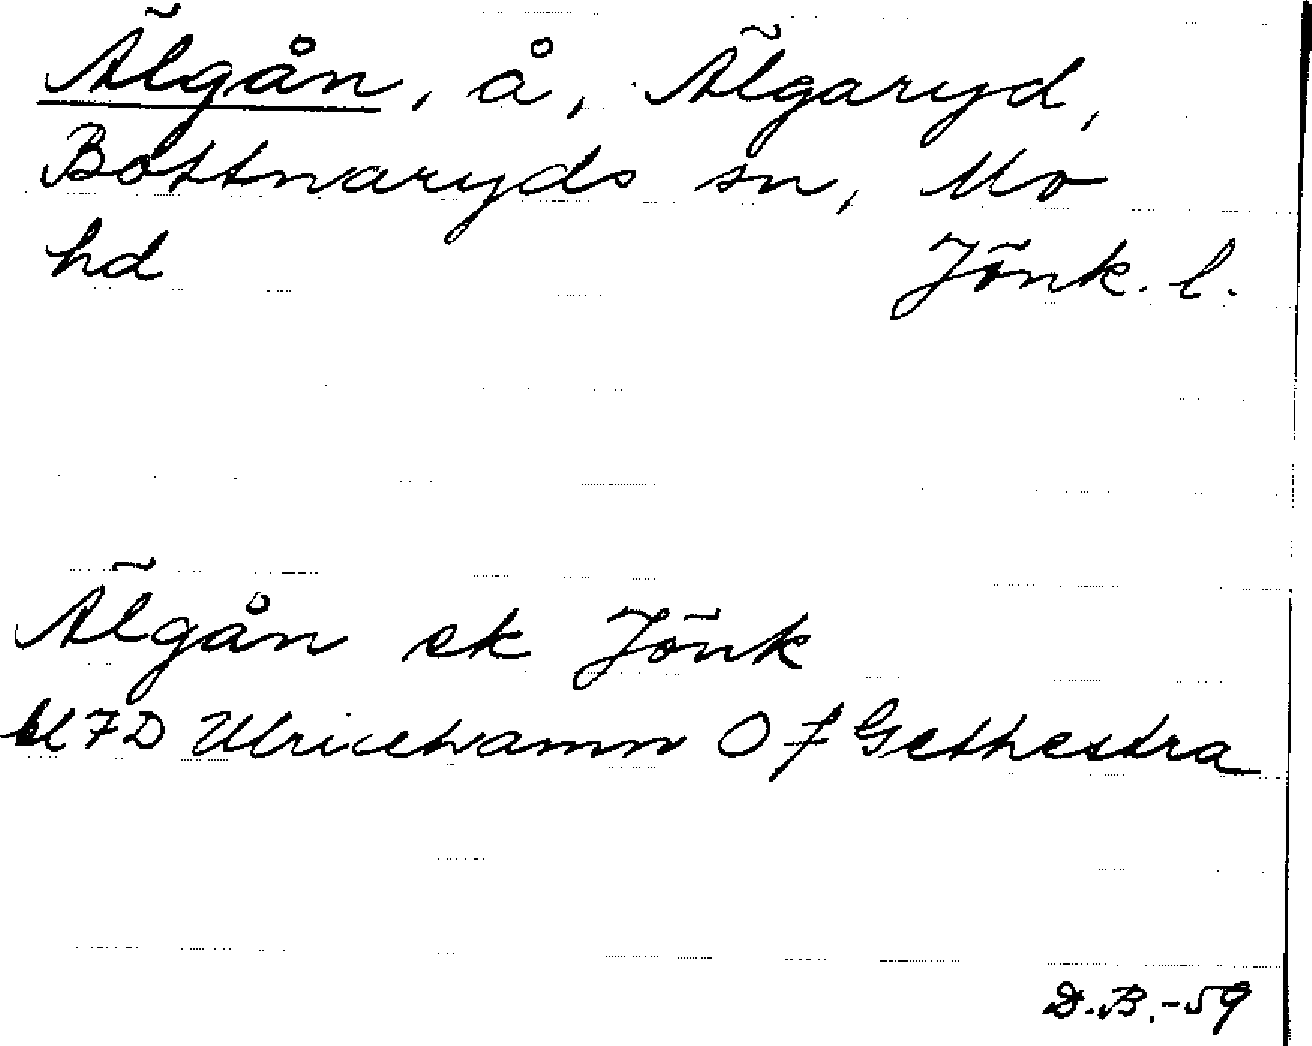 Älgån, å, Älgaryd,
Bottnaryds sn, Mo
hd Jönk. l.
Älgån ek Jönk
7D Ulricehamn O f Gethestra
D.B.-59